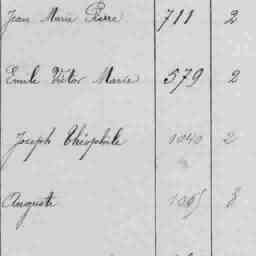 Jean Marie Pierre 711 2
Emile Victor Marie 579 2
Joseph Théophile 1040 2
Auguste 1065 8